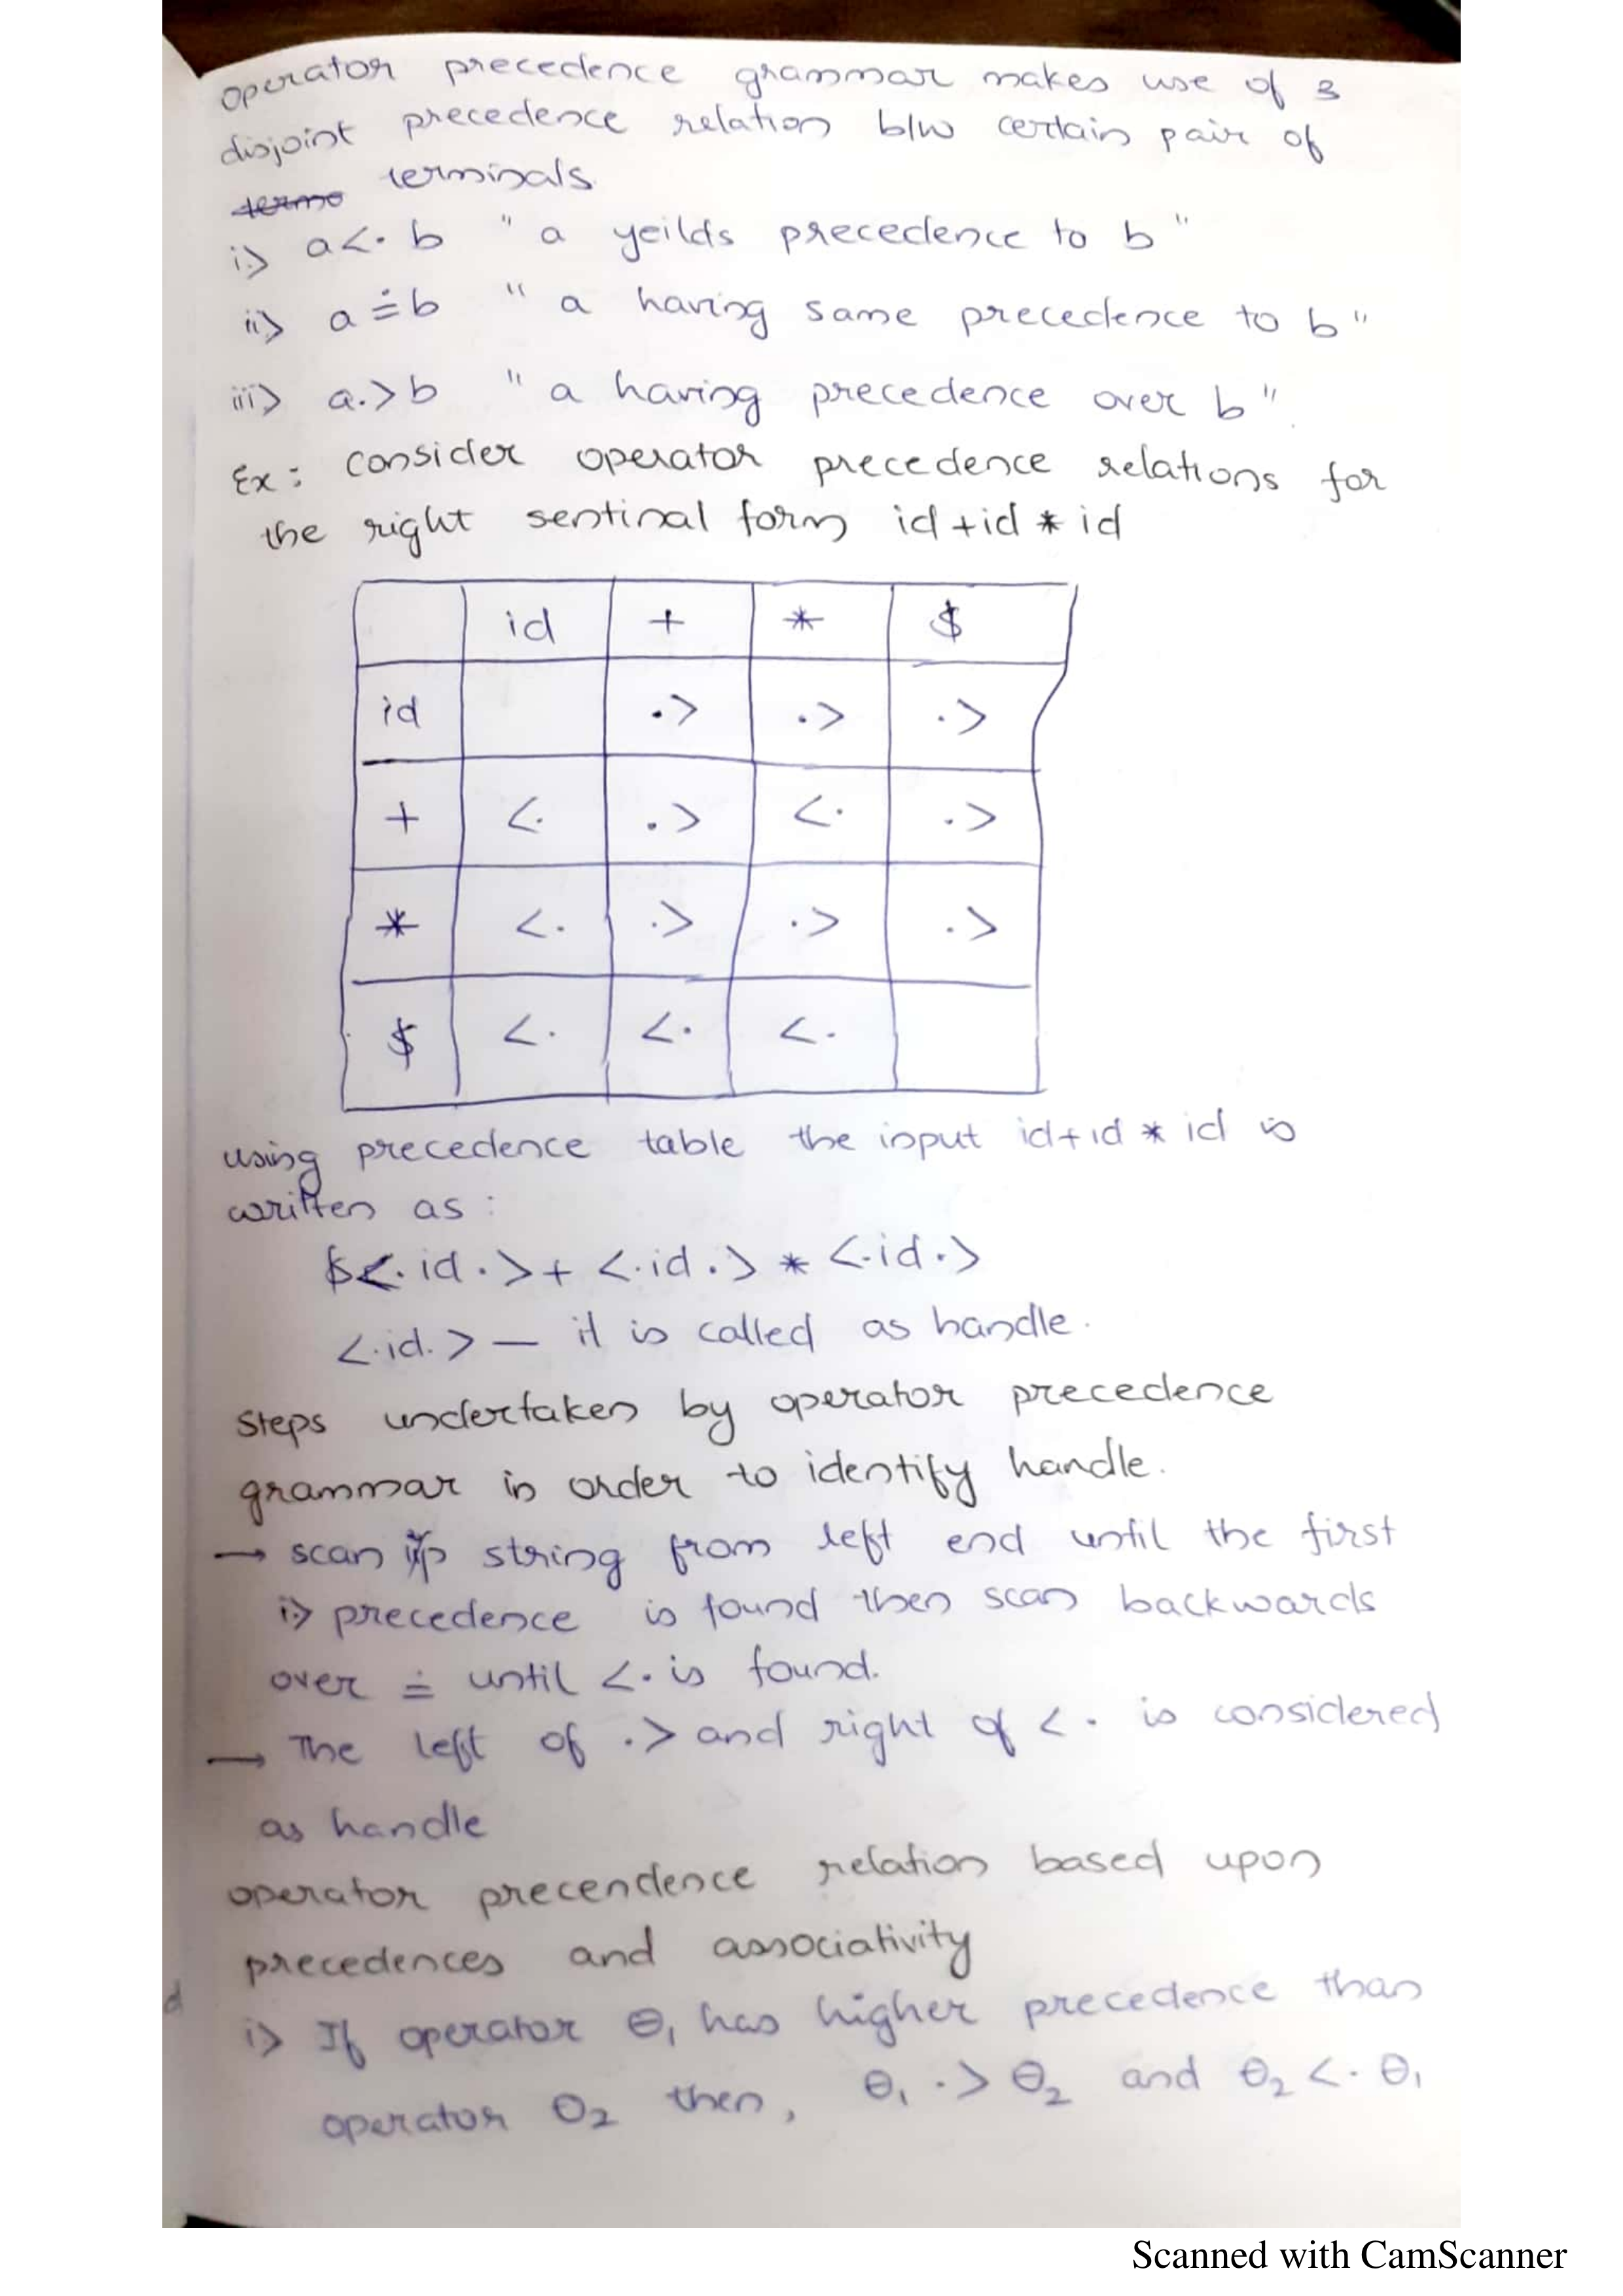 operator precedence grammar makes use of 3
disjoint precedence relation b/w certain pair of
terms terminals.
i> a <· b " a yeilds precedence to b "
ii> a ≐ b " a having same precedence to b "
iii> a ·> b " a having precedence over b ".
Ex: consider operator precedence relations for
the right sentinal form id + id * id
id + * $
id ·> ·> ·>
+ <· ·> <· ·>
* <· ·> ·> ·>
$ <· <· <·
using precedence table the input id + id * id is
written as :
$ <· id ·> + <· id ·> * <· id ·>
<· id ·> — it is called as handle.
steps undertaken by operator precedence
grammar in order to identify handle.
→ scan i/p string from left end until the first
i> precedence is found then scan backwards
over ≐ until <· is found.
→ The left of ·> and right of <· is considered
as handle
operator precendence relation based upon
precedences and associativity
d
i> If operator θ₁ has higher precedence than
operator θ₂ then, θ₁ ·> θ₂ and θ₂ <· θ₁
Scanned with CamScanner